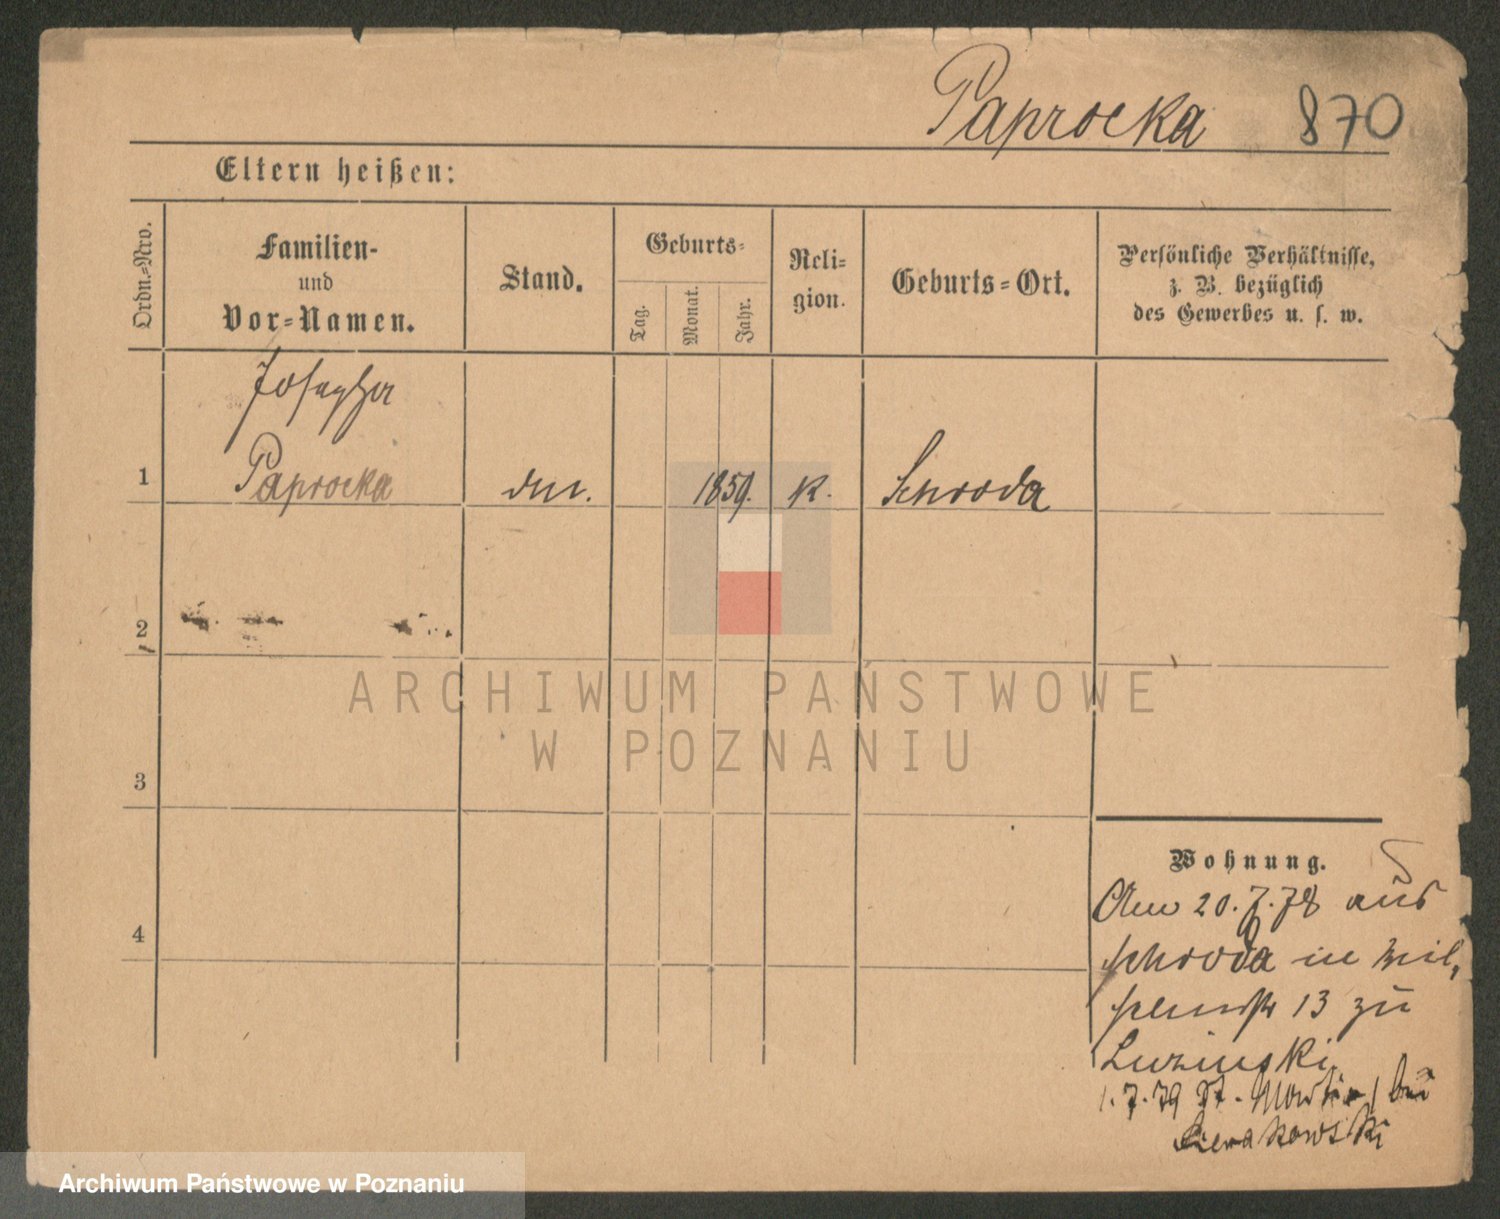 Paprocka 870
Eltern heißen:
Ordn.-Nro.
Familien-
und
Vor-Namen.
Stand.
Geburts-
Tag.
Monat.
Jahr.
Reli-
gion.
Geburts-Ort.
Persönliche Verhältnisse,
z. B. bezüglich
des Gewerbes u. s. w.
Josepha
1 Paprocka 1859. K. Schroda
2
3
4
Wohnung.
Am 20.7.78 aus
Schroda in
13 zu
1.7.79 St. Martin 1 bei
Sierakowski
ARCHIWUM PAŃSTWOWE
W POZNANIU
Archiwum Państwowe w Poznaniu